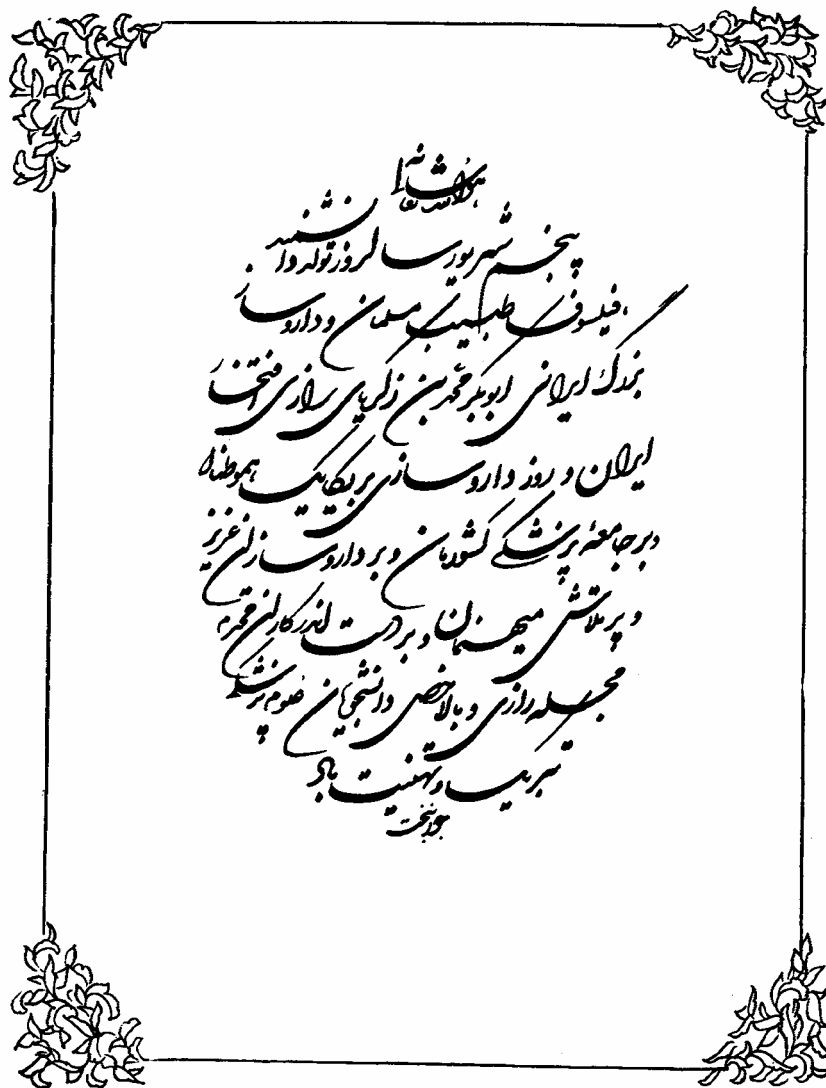 پنجم شهریور سالروز تولد دانشمند
، فیلسوف، طبیب مسلمان و داروساز
بزرگ ایرانی ابوبکر محمد بن زکریای رازی افتخار
ایران و روز داروسازی بر یکایک هموطنان
و بر جامعهٔ پزشکی کشورمان و بر داروسازان عزیز
و پر تلاش میهنمان و بر دست اندرکاران محترم
مجله رازی و بالاخص دانشجویان علوم پزشکی
تبریک و تهنیت باد